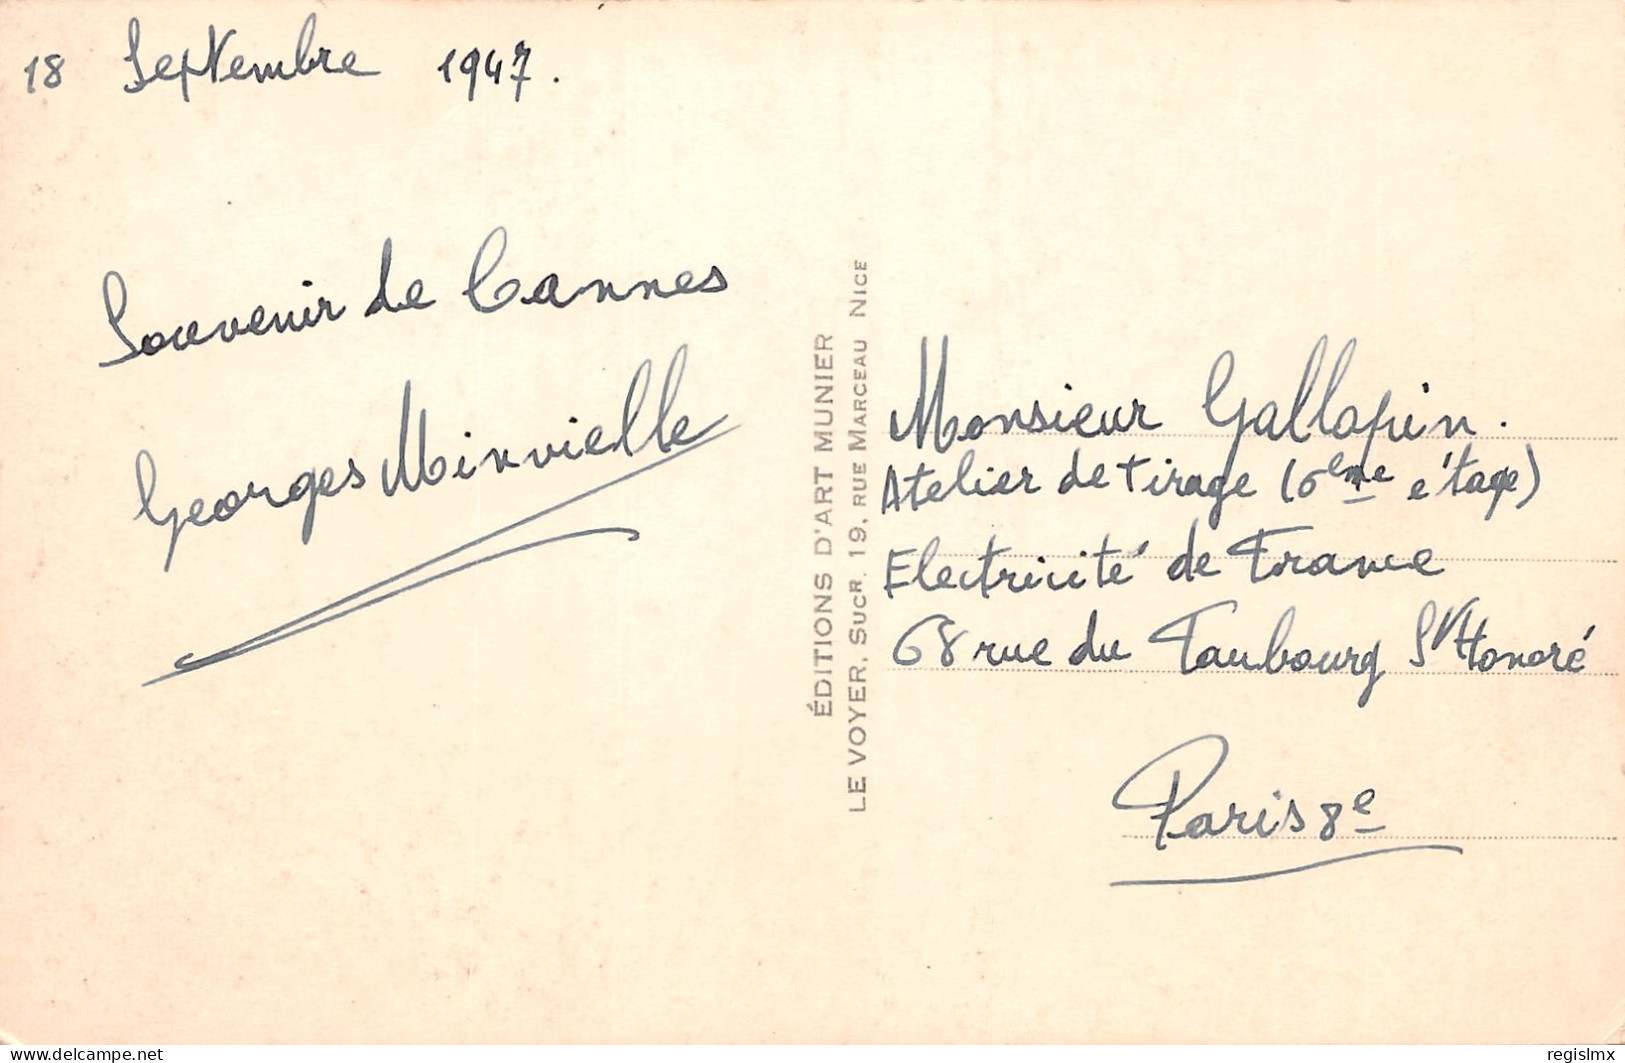 18 Septembre 1947.
Souvenir de Cannes
Georges Minvielle
ÉDITIONS D'ART MUNIER
LE VOYER, SUCR. 19, RUE MARCEAU NICE
Monsieur Gallopin.
Atelier de tirage (6ème étage)
Electricité de France
68 rue du Faubourg St Honoré
Paris 8e
delcampe.net
regislmx